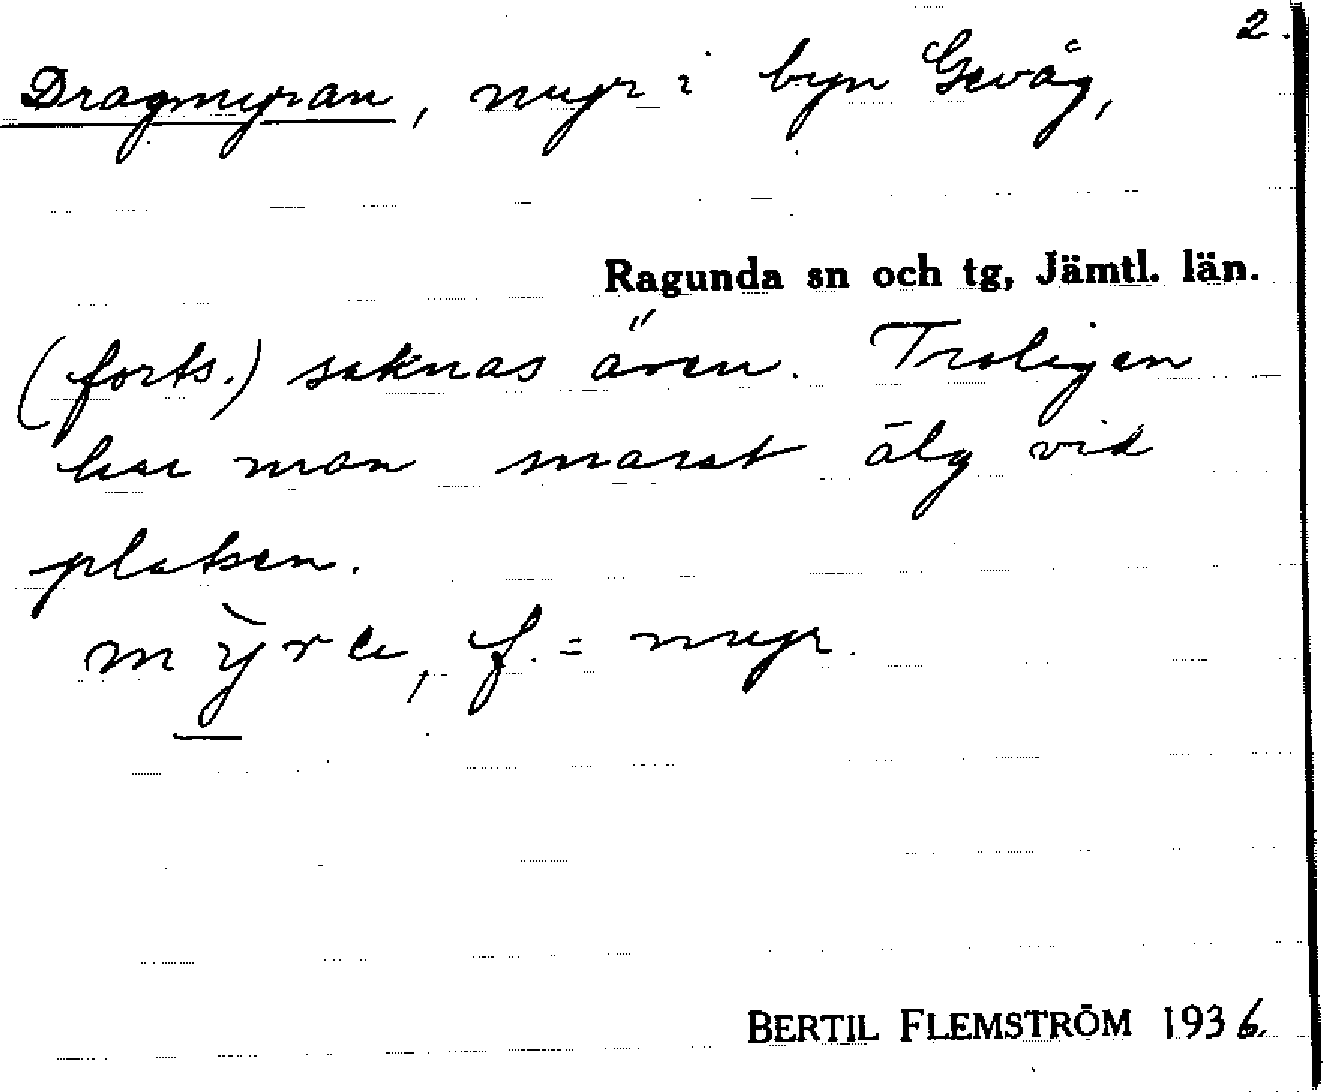 2.
Dragmyran, myr i byn Gevåg,
Ragunda sn och tg, Jämtl. län.
(forts.) saknas även. Troligen
har man snarat älg vid
platsen.
mỳra, f. = myr.
BERTIL FLEMSTRÖM 1936.